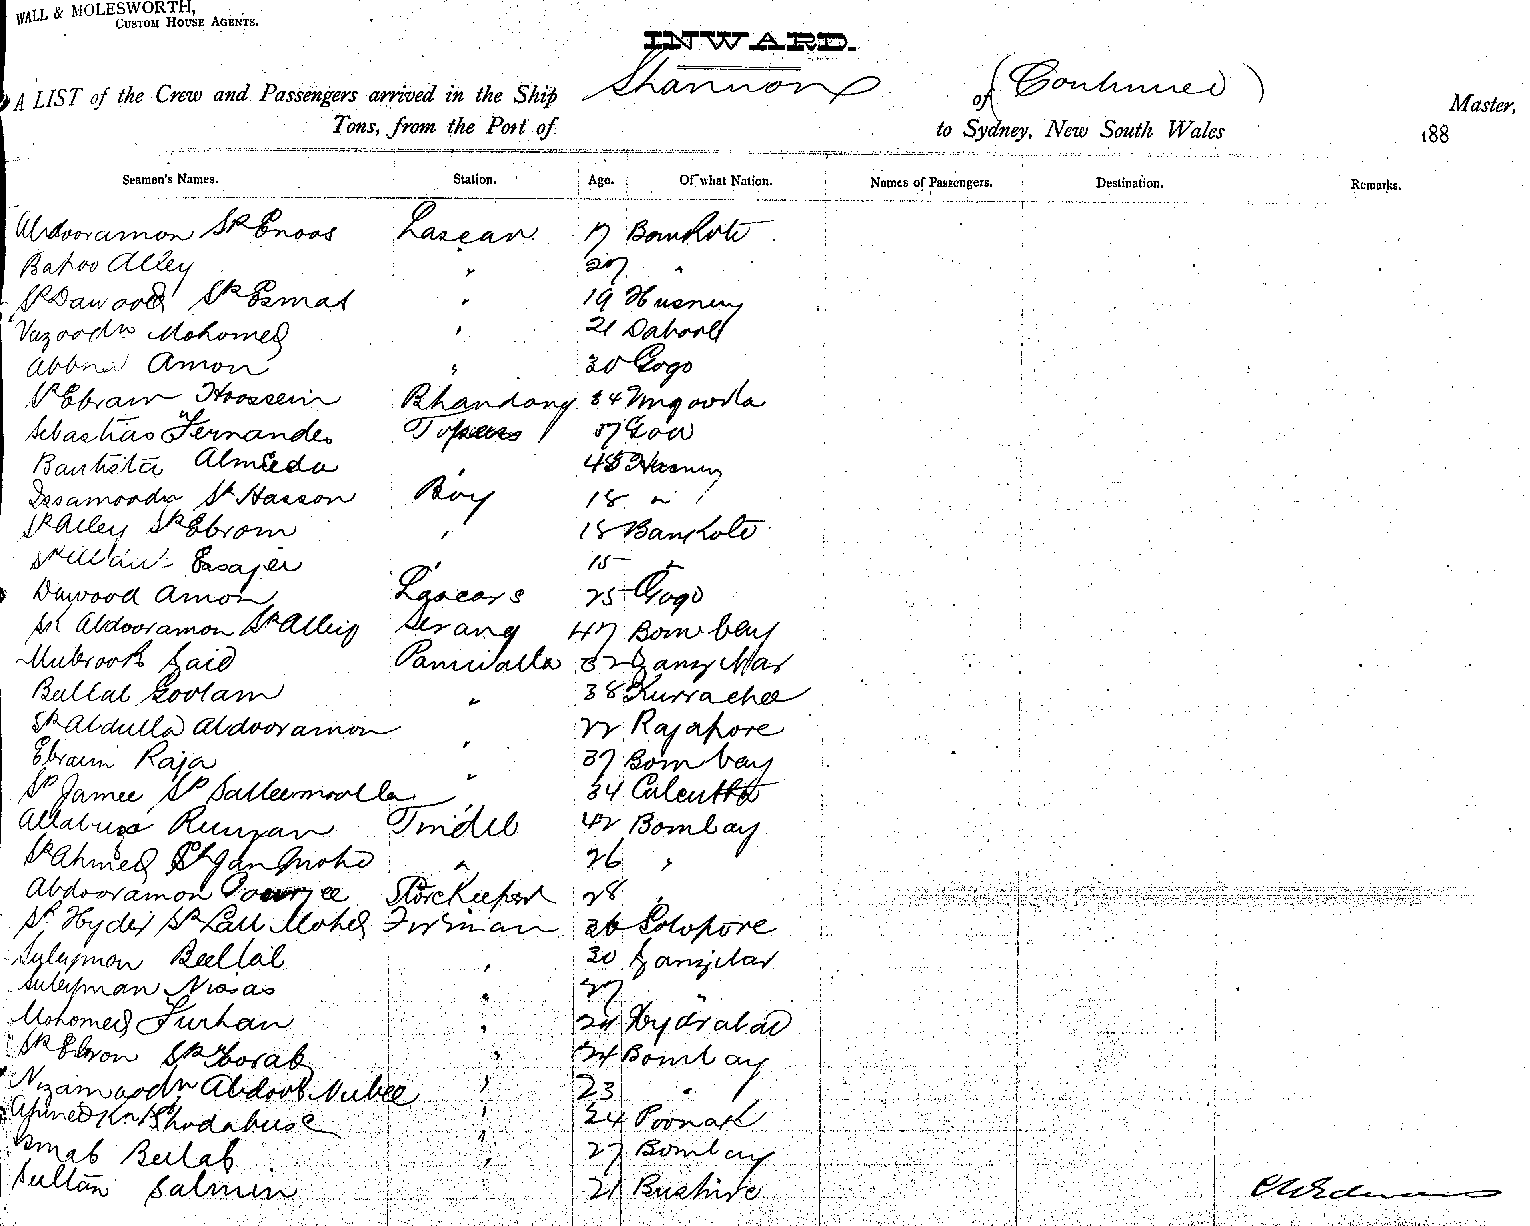 WALL & MOLESWORTH,
CUSTOM HOUSE AGENTS.
INWARD.
A LIST of the Crew and Passengers arrived in the Ship Shannon of (Continued) Master,
Tons, from the Port of to Sydney, New South Wales 188
Seamen's Names. Station. Age. Of what Nation. Names of Passengers. Destination. Remarks.
Abdooramon Sk Enoos Lascar 17 Bankote
Baboo Alley " 27 "
Sk Dawood Sk Esmal " 19 Husney
Vazoodn Mohomed " 21 Dabool
Amon " 30 Gogo
Sk Ebram Hoossein Bhandary 34
Sebastiao Fernandes Topass 37 Goa
Bautista Almeida " 45
Issamoodn Sk Hasson Boy 18 "
Sk Alley Sk Ebrom " 18 Bankote
Essajee " 15 "
Dawood Amon Lascars 25 Gogo
Sk Abdooramon Sk Alleiy Serang 47 Bombay
Mubrook Said Paniwalla 32 Zanzibar
Bellal Goolam " 38 Kurrachee
Sk Abdulla Abdooramon " 22 Rajapore
Ebraim Raja " 37 Bombay
Sk Jamee Sk Salleemoolla " 34 Calcutta
Allabuxo Rumzan Tindel 42 Bombay
Sk Ahmed Sk Jan Mohd " 26 "
Abdooramon Storekeeper 28
Sk Hyder Sk Lall Mohed Firiman 36 Solopore
Suleymon Bellal " 30 Zanzibar
Suleyman Nissas " 27 "
Mohomed Furhan " 24 Hydrabad
Sk Ebron Sk " 24 Bombay
Nizamoodn Abdool Nubee " 23 "
Ahmed Kn Khodabuse " 24 Poonah
Esmal Bellal " 27 Bombay
Sultan Salmin 21 Bushire